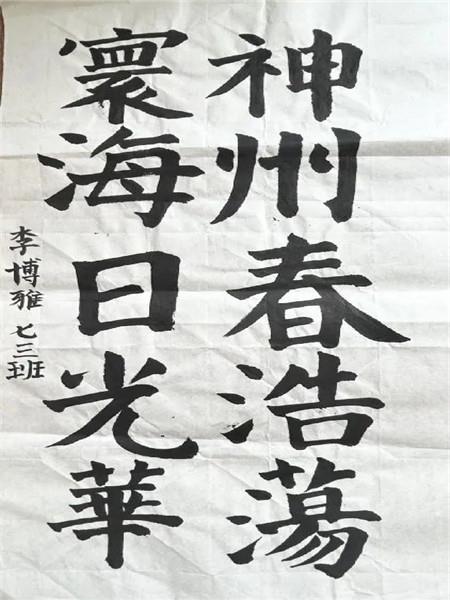 神州春浩蕩
寰海日光華
李博雅 七三班